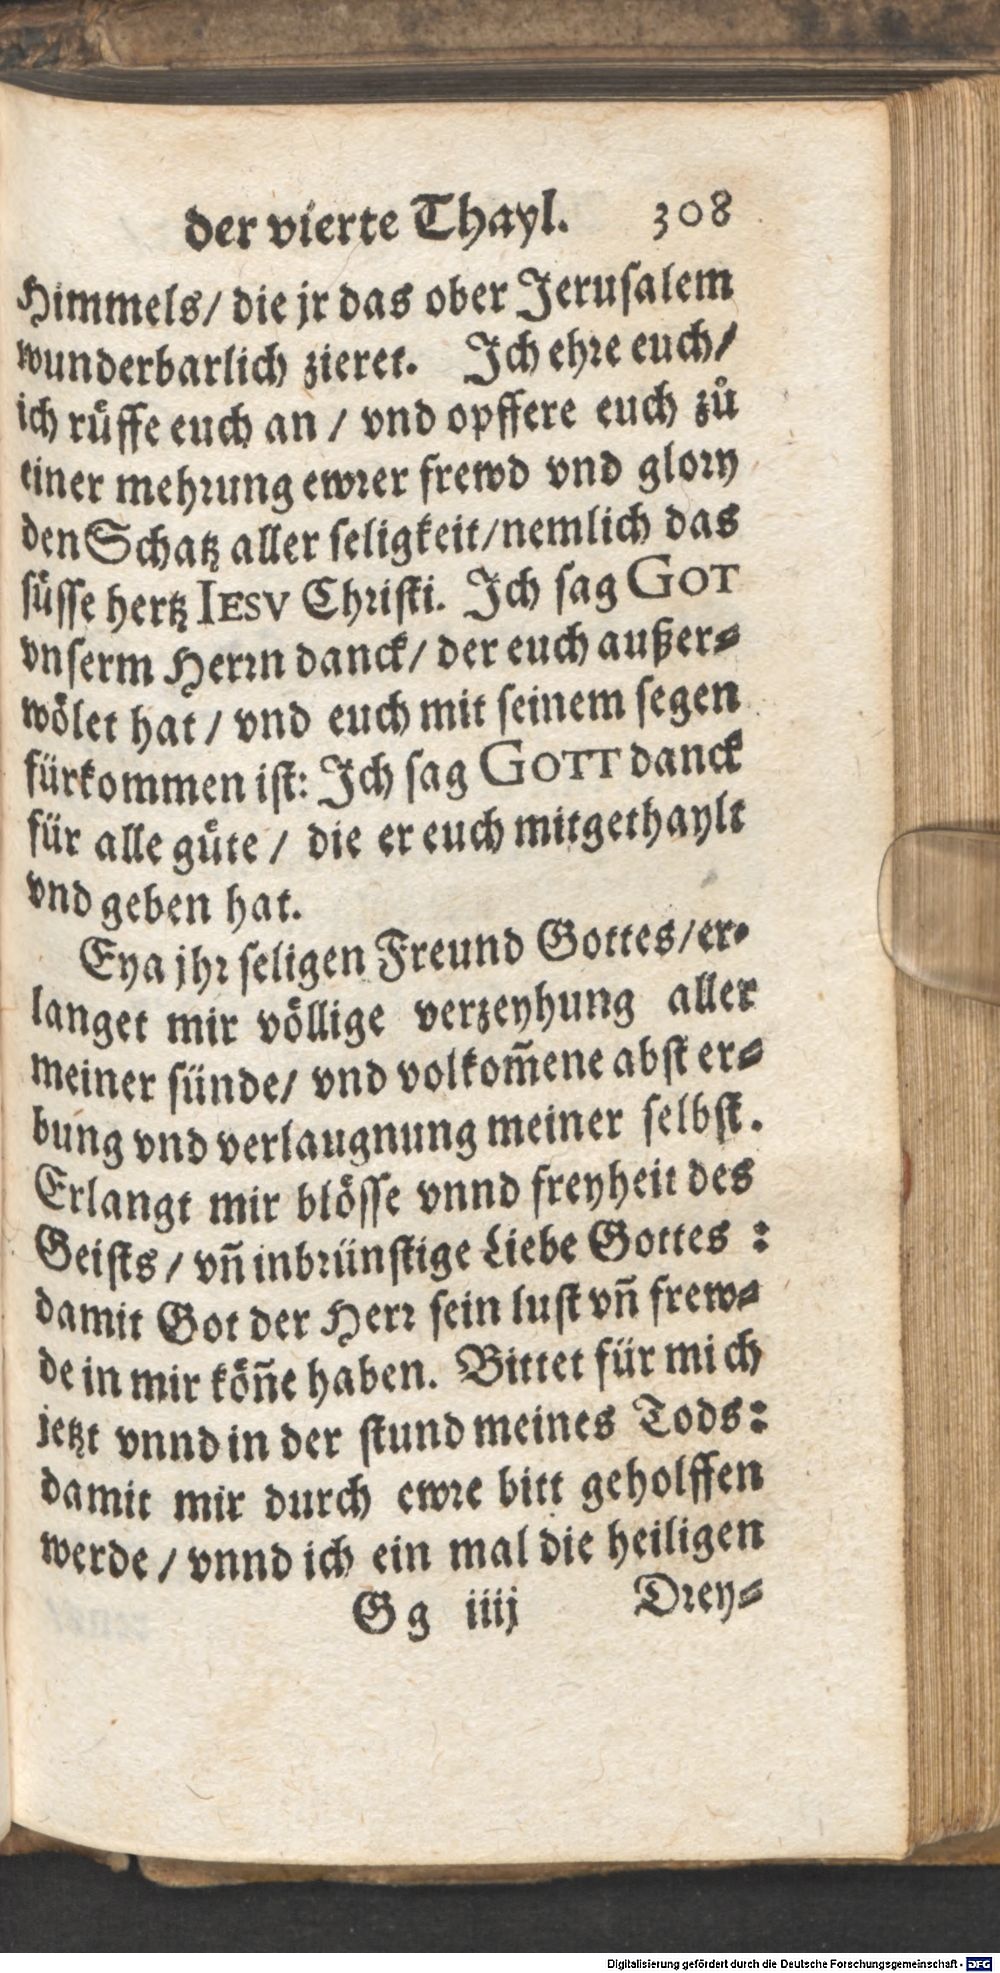 der vierte Thayl. 308
Himmels/ die jr das ober Jerusalem
wunderbarlich zieret. Ich ehre euch/
ich rüffe euch an / vnd opffere euch zů
einer mehrung ewrer frewd vnd glory
den Schatz aller seligkeit/nemlich das
süsse hertz IESV Christi. Ich sag GOT
vnserm Herrn danck/ der euch außer-
wölet hat / vnd euch mit seinem segen
fürkommen ist: Ich sag GOTT danck
für alle güte / die er euch mitgethaylt
vnd geben hat.
Eya jhr seligen Freund Gottes/er-
langet mir völlige verzeyhung aller
meiner sünde/ vnd volkom̃ene abster-
bung vnd verlaugnung meiner selbst.
Erlangt mir blösse vnnd freyheit des
Geists / vñ inbrünstige Liebe Gottes :
damit Got der Herr sein lust vñ frew-
de in mir köñe haben. Bittet für mich
jetzt vnnd in der stund meines Tods:
damit mir durch ewre bitt geholffen
werde / vnnd ich ein mal die heiligen
Gg iiij Drey-
Digitalisierung gefördert durch die Deutsche Forschungsgemeinschaft - DFG